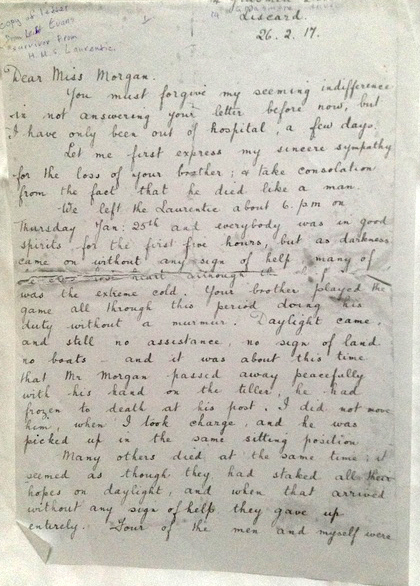 Copy of letter
from Lieut Evans
survivor from
H.M.S. Laurentic.
Liscard.
26. 2. 17.
Dear Miss Morgan.
You must forgive my seeming indifference
in not answering your letter before now, but
I have only been out of hospital, a few days.
Let me first express my sincere sympathy
for the loss of your brother; & take consolation
from the fact that he died like a man.
We left the Laurentic about 6. p.m on
Thursday Jan: 25th and everybody was in good
spirits for the first five hours, but as darkness
came on without any sign of help many of
lost heart although the
was the extreme cold. Your brother played the
game all through this period doing his
duty without a murmur. Daylight came,
and still no assistance, no sign of land
no boats - and it was about this time
that Mr Morgan passed away peacefully
with his hand on the tiller, he had
frozen to death at his post. I did not move
him, when I took charge, and he was
picked up in the same sitting position
Many others died at the same time; it
seemed as though they had staked all their
hopes on daylight, and when that arrived
without any sign of help they gave up
entirely. Four of the men and myself were